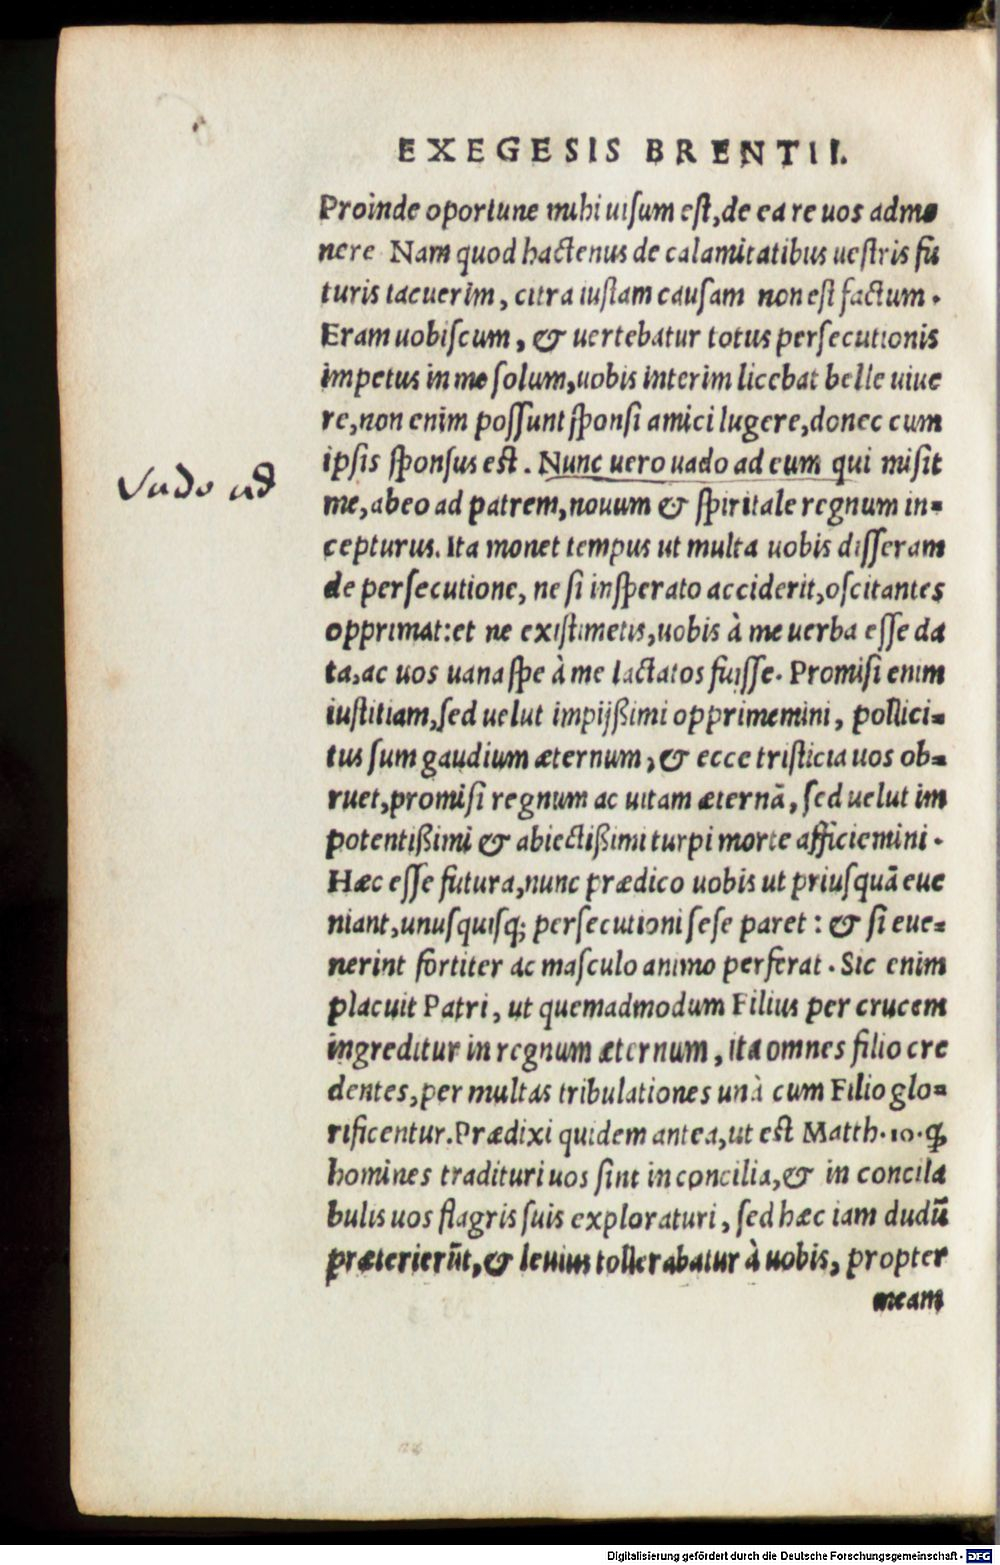 EXEGESIS BRENTII.
Proinde oportune mihi uisum est, de ea re uos admo
nere Nam quod hactenus de calamitatibus uestris fu
turis tacuerim, citra iustam causam non est factum.
Eram uobiscum, & uertebatur totus persecutionis
impetus in me solum, uobis interim licebat belle uiue
re, non enim possunt sponsi amici lugere, donec cum
ipsis sponsus est. Nunc uero uado ad eum qui misit
Vado ad
me, abeo ad patrem, nouum & spiritale regnum in-
cepturus. Ita monet tempus ut multa uobis disseram
de persecutione, ne si insperato acciderit, oscitantes
opprimat: et ne existimetis, uobis à me uerba esse da
ta, ac uos uana spe à me lactatos fuisse. Promisi enim
iustitiam, sed uelut impijßimi opprimemini, pollici-
tus sum gaudium æternum, & ecce tristicia uos ob-
ruet, promisi regnum ac uitam æternā, sed uelut im
potentißimi & abiectißimi turpi morte afficiemini.
Hæc esse futura, nunc prædico uobis ut priusquā eue
niant, unusquisq; persecutioni sese paret: & si eue-
nerint fortiter ac masculo animo perferat. Sic enim
placuit Patri, ut quemadmodum Filius per crucem
ingreditur in regnum æternum, ita omnes filio cre
dentes, per multas tribulationes unà cum Filio glo-
rificentur. Prædixi quidem antea, ut est Matth. 10. ꝙ
homines tradituri uos sint in concilia, & in concila
bulis uos flagris suis exploraturi, sed hæc iam dudū
præterierūt, & leuius tollerabatur à uobis, propter
meam
Digitalisierung gefördert durch die Deutsche Forschungsgemeinschaft - DFG